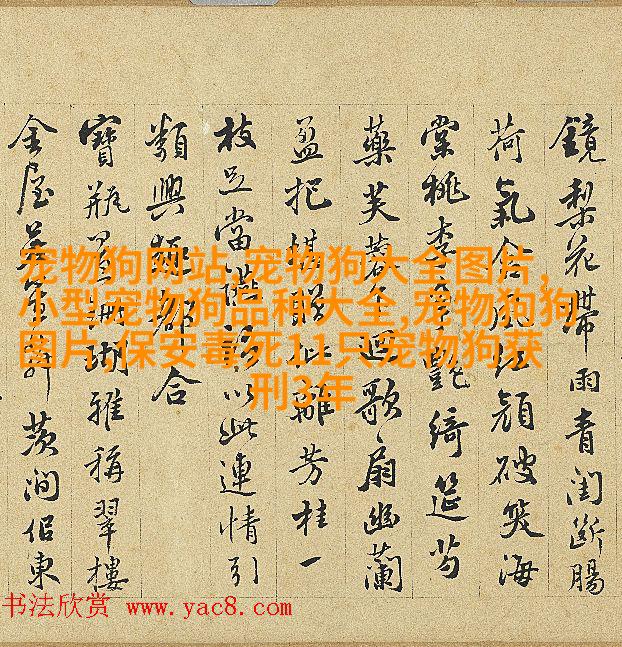 鏡梨花帶雨青閨斷腸
荷氣含風紅顏破笑海
棠桃李艷綺筵芍
藥芙蓉迴歌扇幽蘭
盈把堪贈離芳桂一
枝足當讌以此連情引
類興極都合
寶瓶置珊瑚雅稱翠樓
金屋茨澗侶東
宠物狗网站,宠物狗大全图片,
小型宠物狗品种大全,宠物狗狗
图片,保安毒死11只宠物狗获
刑3年
书法欣赏 www.yac8.com